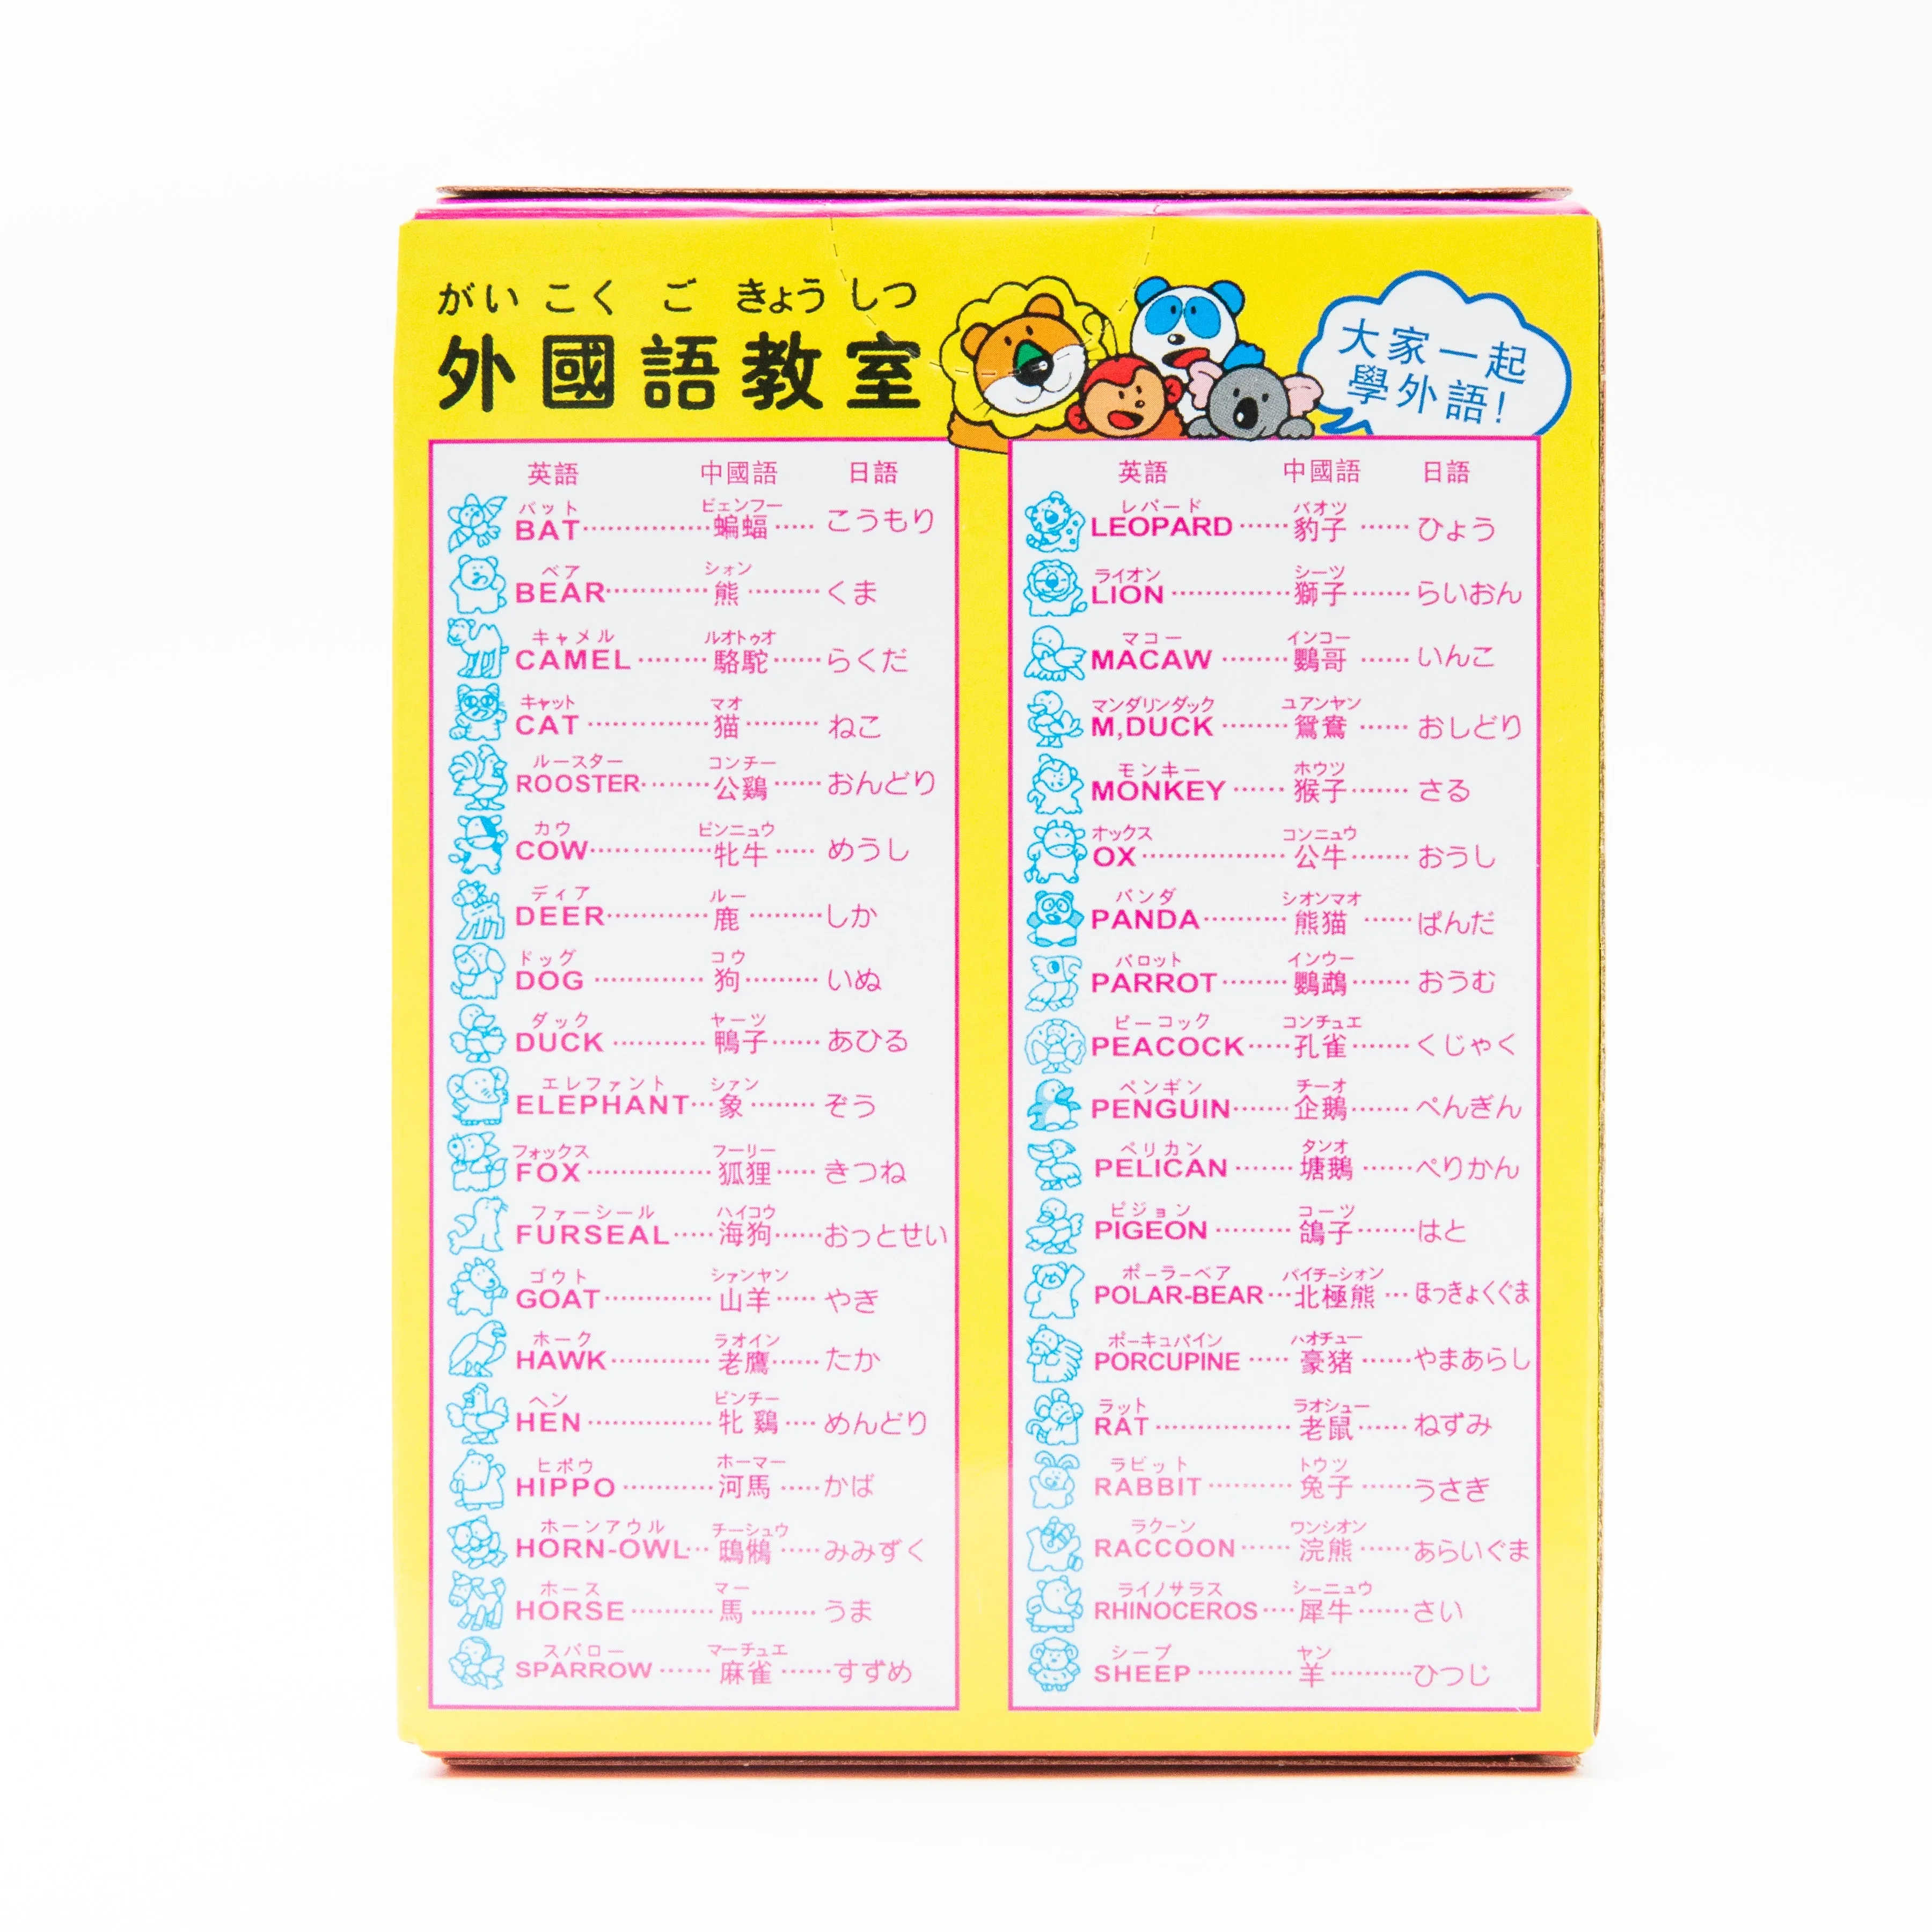 がいこくごきょうしつ
外國語教室
大家一起
學外語!
英語 中國語 日語
バット ビェンフー
BAT 蝙蝠 こうもり
ベア シォン
BEAR 熊 くま
キャメル ルオトゥオ
CAMEL 駱駝 らくだ
キャット マオ
CAT 猫 ねこ
ルースター コンチー
ROOSTER 公鷄 おんどり
カウ ピンニュウ
COW 牝牛 めうし
ディア ルー
DEER 鹿 しか
ドッグ コウ
DOG 狗 いぬ
ダック ヤーツ
DUCK 鴨子 あひる
エレファント シァン
ELEPHANT 象 ぞう
フォックス フーリー
FOX 狐狸 きつね
ファーシール ハイコウ
FURSEAL 海狗 おっとせい
ゴウト シァンヤン
GOAT 山羊 やぎ
ホーク ラオイン
HAWK 老鷹 たか
ヘン ピンチー
HEN 牝鷄 めんどり
ヒポウ ホーマー
HIPPO 河馬 かば
ホーンアウル チーシュウ
HORN-OWL 鴟鵂 みみずく
ホース マー
HORSE 馬 うま
スパロー マーチュエ
SPARROW 麻雀 すずめ
英語 中國語 日語
レパード バオツ
LEOPARD 豹子 ひょう
ライオン シーツ
LION 獅子 らいおん
マコー インコー
MACAW 鸚哥 いんこ
マンダリンダック ユアンヤン
M,DUCK 鴛鴦 おしどり
モンキー ホウツ
MONKEY 猴子 さる
オックス コンニュウ
OX 公牛 おうし
パンダ シオンマオ
PANDA 熊猫 ぱんだ
パロット インウー
PARROT 鸚鵡 おうむ
ピーコック コンチュエ
PEACOCK 孔雀 くじゃく
ペンギン チーオ
PENGUIN 企鵝 ぺんぎん
ペリカン タンオ
PELICAN 塘鵝 ぺりかん
ピジョン コーツ
PIGEON 鴿子 はと
ポーラーベア バイチーシォン
POLAR-BEAR 北極熊 ほっきょくぐま
ポーキュパイン ハオチュー
PORCUPINE 豪猪 やまあらし
ラット ラオシュー
RAT 老鼠 ねずみ
ラビット トウツ
RABBIT 兔子 うさぎ
ラクーン ワンシオン
RACCOON 浣熊 あらいぐま
ライノサラス シーニュウ
RHINOCEROS 犀牛 さい
シープ ヤン
SHEEP 羊 ひつじ